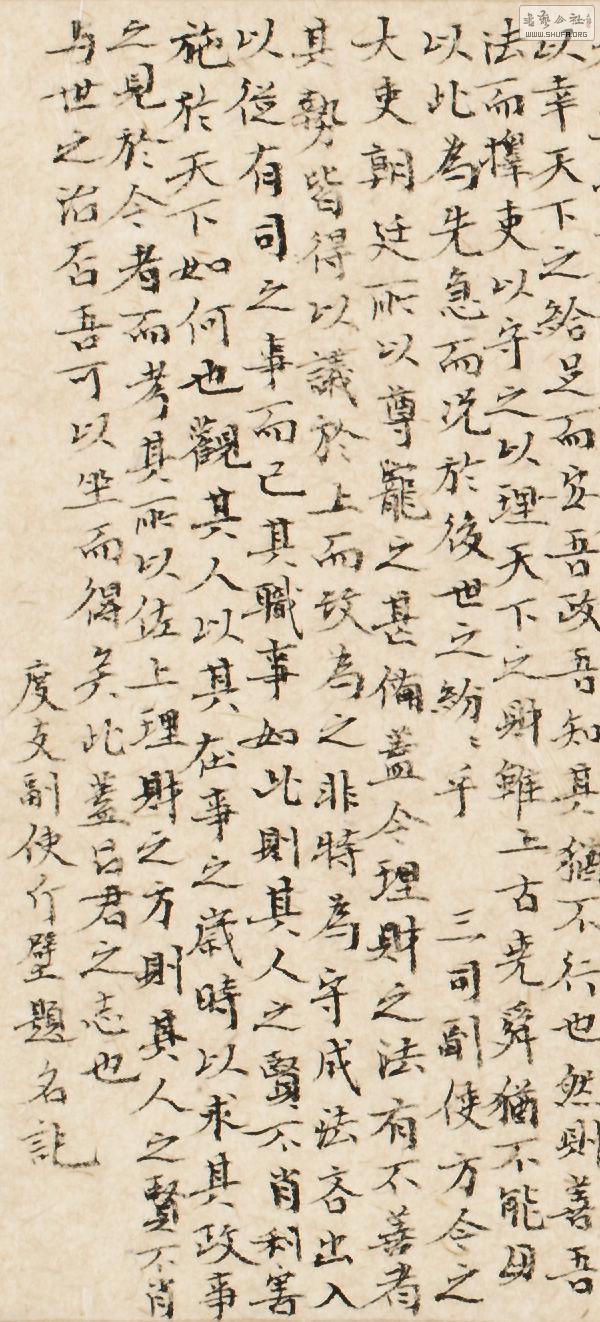 书艺公社
WWW.SHUFA.ORG
以幸天下之給足而安吾政吾知其猶不行也然則善吾
法而擇吏以守之以理天下之財雖上古堯舜猶不能毋
以此為先急而況於後世之紛〻乎 三司副使方今之
大吏朝廷所以尊寵之甚備蓋今理財之法有不善者
其勢皆得以議於上而改為之非特為守成法吝出入
以從有司之事而已其職事如此則其人之賢不肖利害
施於天下如何也觀其人以其在事之歲時以求其政事
之見於今者而考其所以佐上理財之方則其人之賢不肖
与世之治否吾可以坐而得矣此蓋呂君之志也
度支副使厅壁題名記